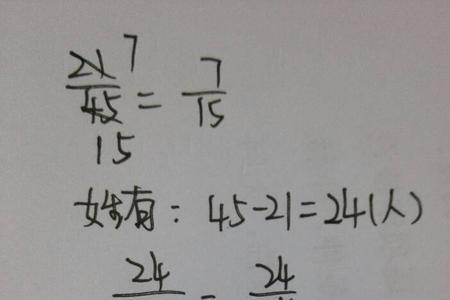 21/45 = 7/15
7
15
女生有：45-21=24(人)
24 = 24